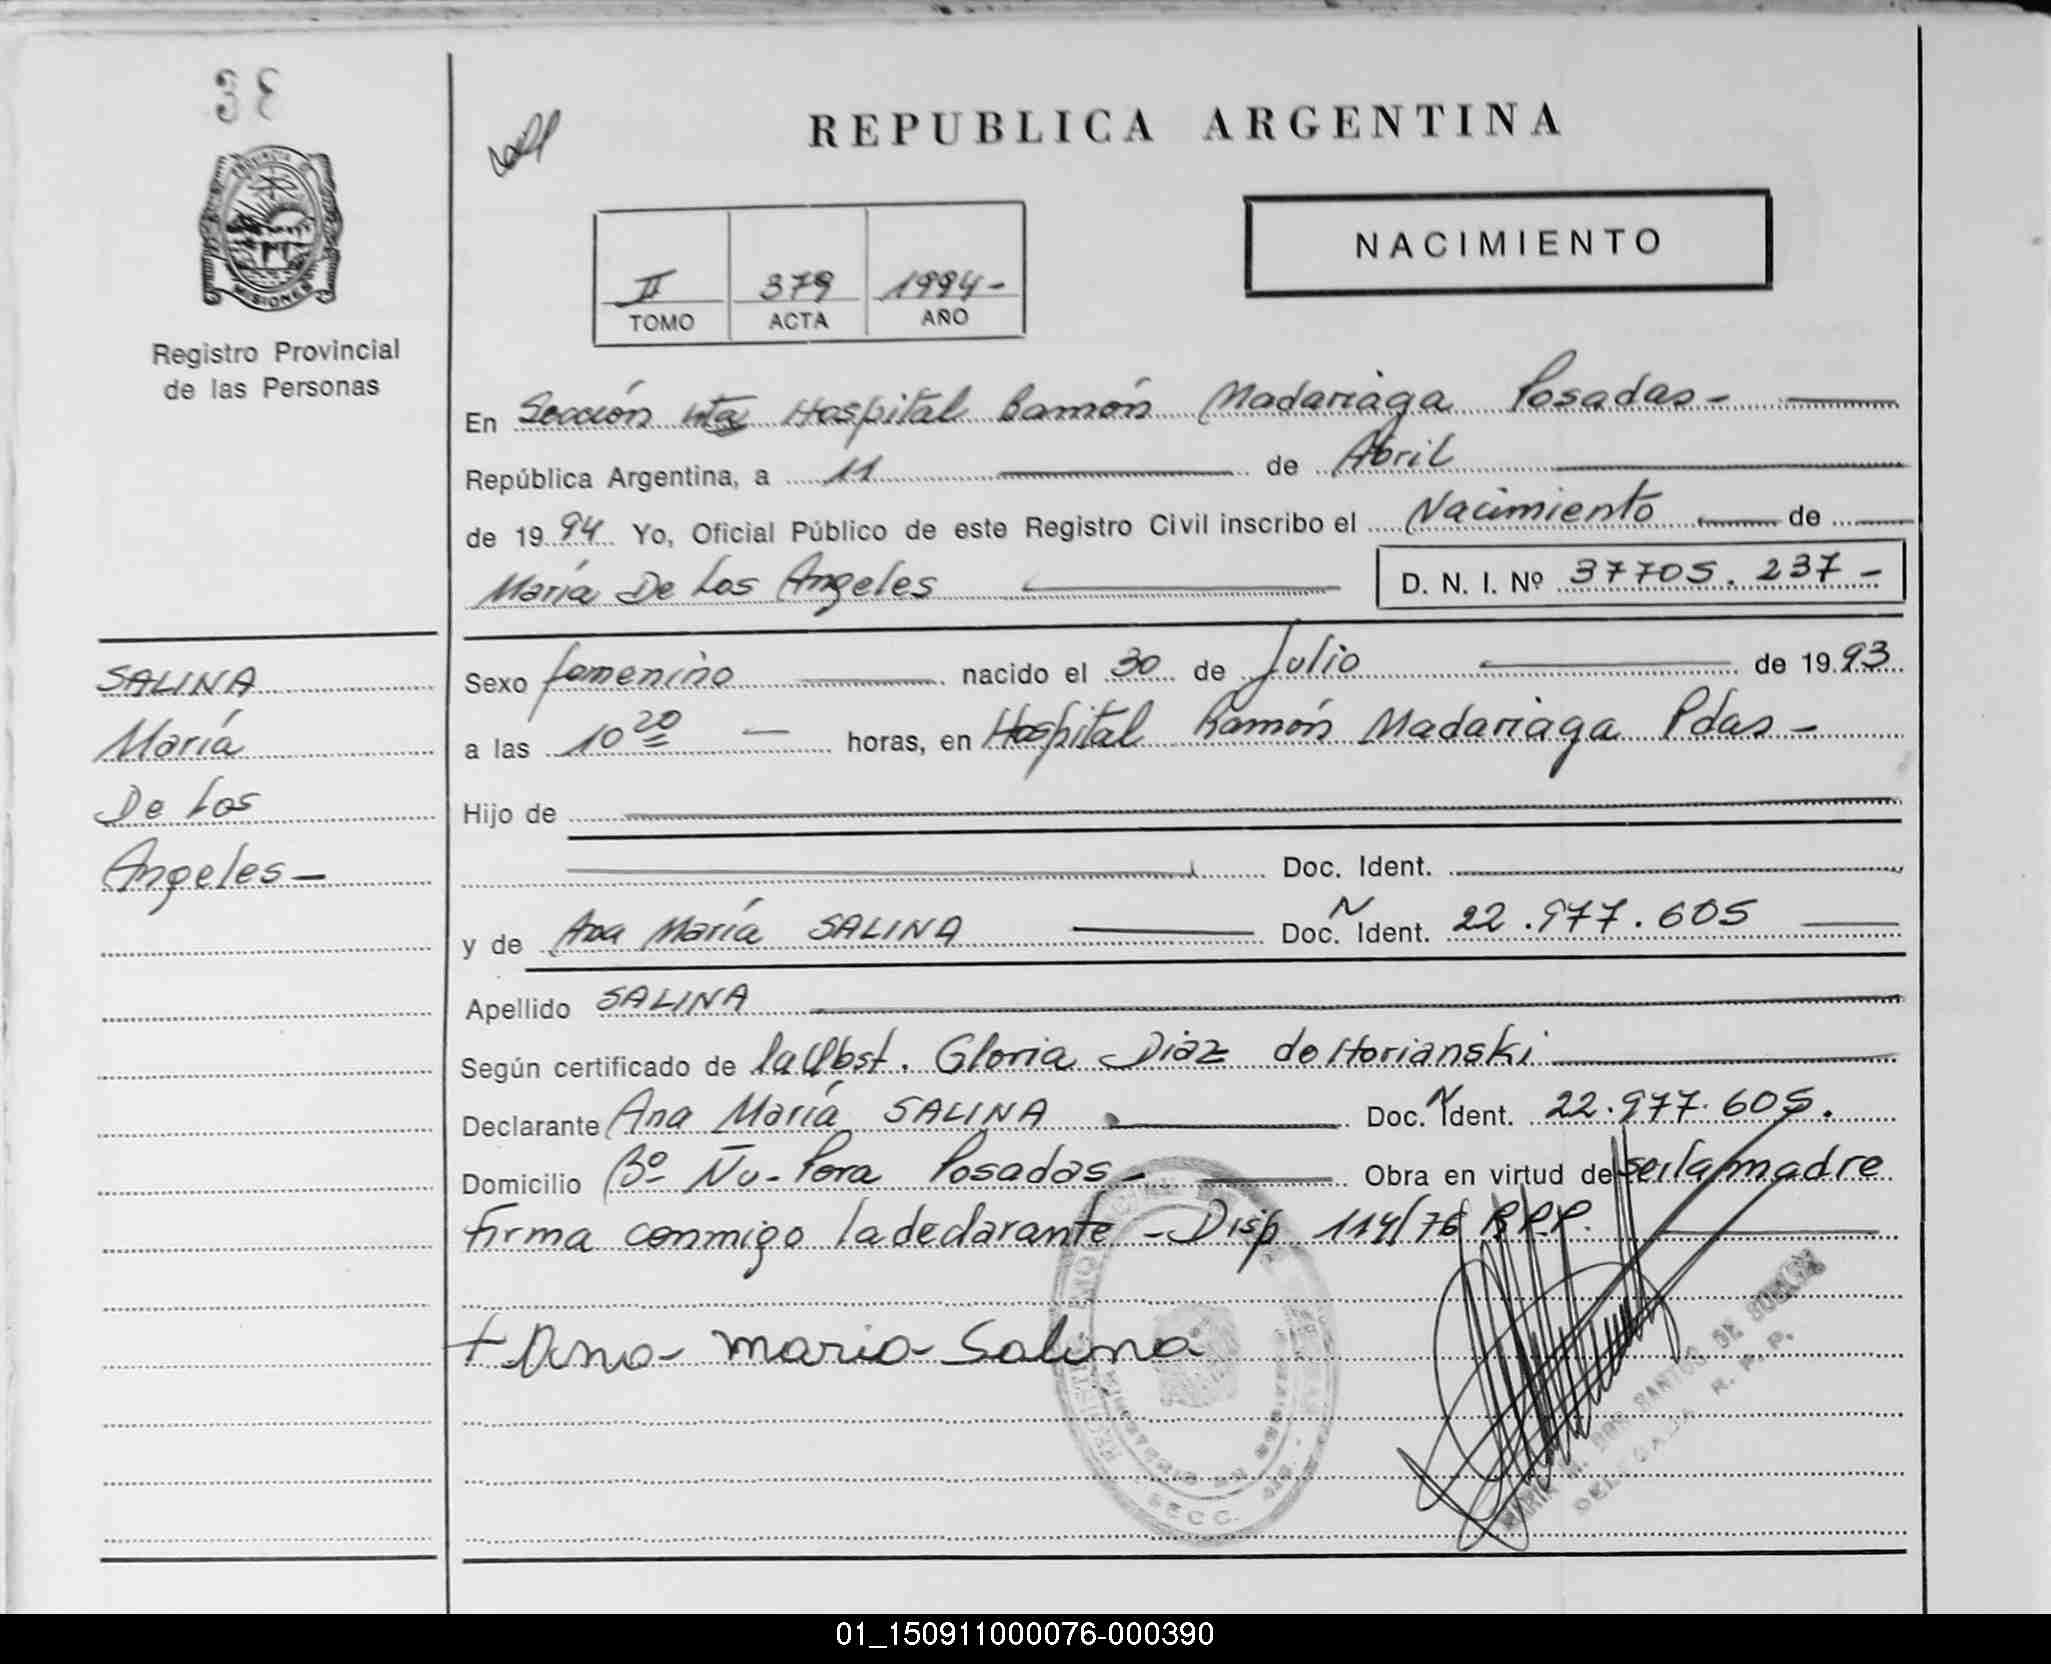 38
REPUBLICA ARGENTINA
NACIMIENTO
II 379 1994-
TOMO ACTA AÑO
PROVINCIA DE MISIONES
Registro Provincial
de las Personas
En Sección Hospital Ramón Madariaga Posadas-
República Argentina, a 11 de Abril
de 1994 Yo, Oficial Público de este Registro Civil inscribo el Nacimiento de
María De Los Angeles D. N. I. Nº 37705.237-
SALINA
María
De Los
Angeles-
Sexo femenino nacido el 30 de Julio de 1993
a las 10 20 horas, en Hospital Ramón Madariaga Pdas-
Hijo de
Doc. Ident.
y de Ana María SALINA Doc. N Ident. 22.977.605
Apellido SALINA
Según certificado de la Obst. Gloria Diaz de Horianski
Declarante Ana María SALINA Doc. N Ident. 22.977.605.
Domicilio Bº Ñu-Pora Posadas- Obra en virtud de ser la madre
firma conmigo la declarante-Disp 114/76 R.P.P.
+ Ana maria Salina
SANTOS DE
DELEGADA R. P. P.
SECC.
01_150911000076-000390